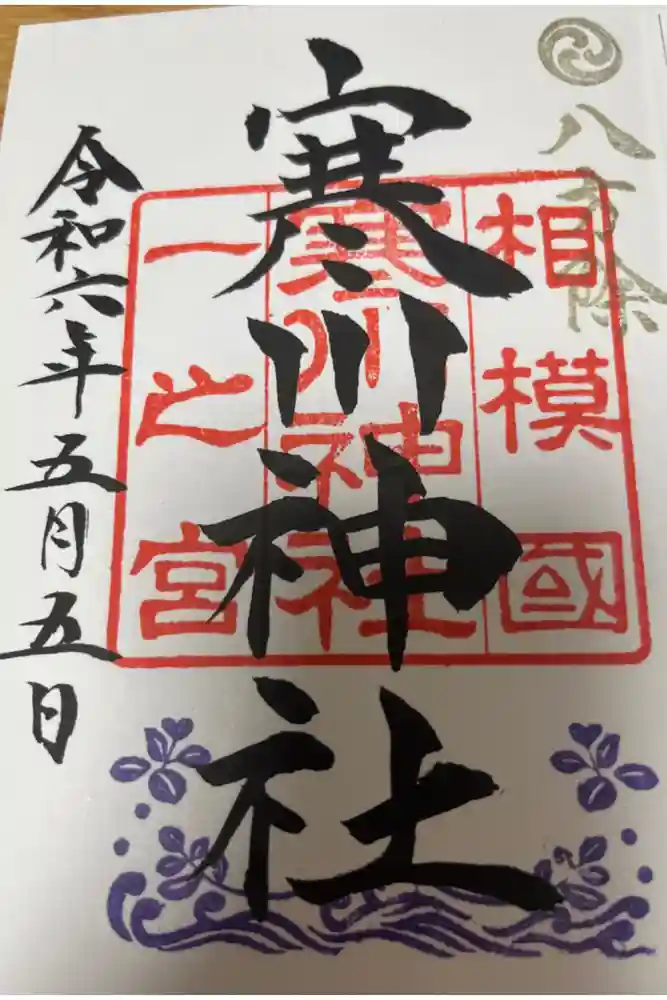 八方除
相模國
寒川神社
一之宮
寒川神社
令和六年五月五日